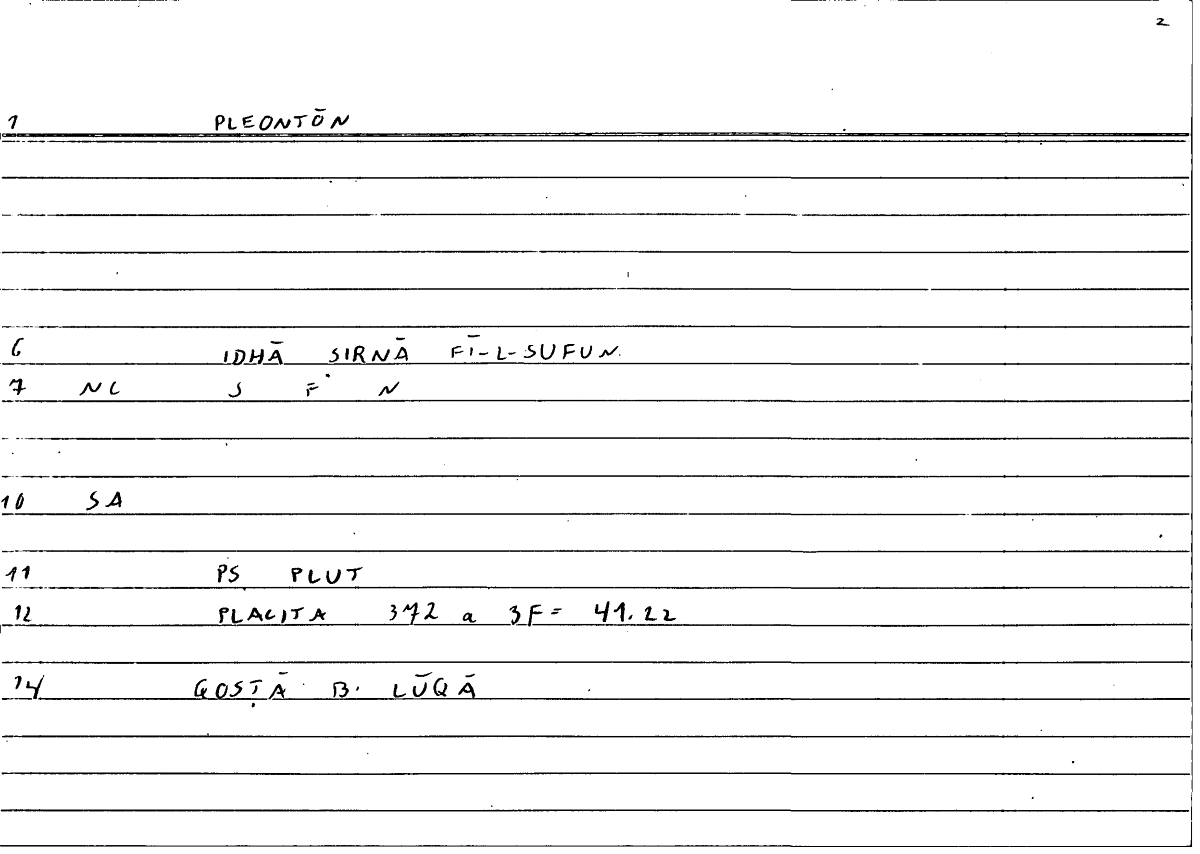 2
1 PLEONTŌN
6 IDHĀ SIRNĀ FĪ-L-SUFUN.
7 NC S F N
10 SA
11 PS PLUT
12 PLACITA 372 a 3F= 41.22
14 QOSṬĀ B. LŪQĀ